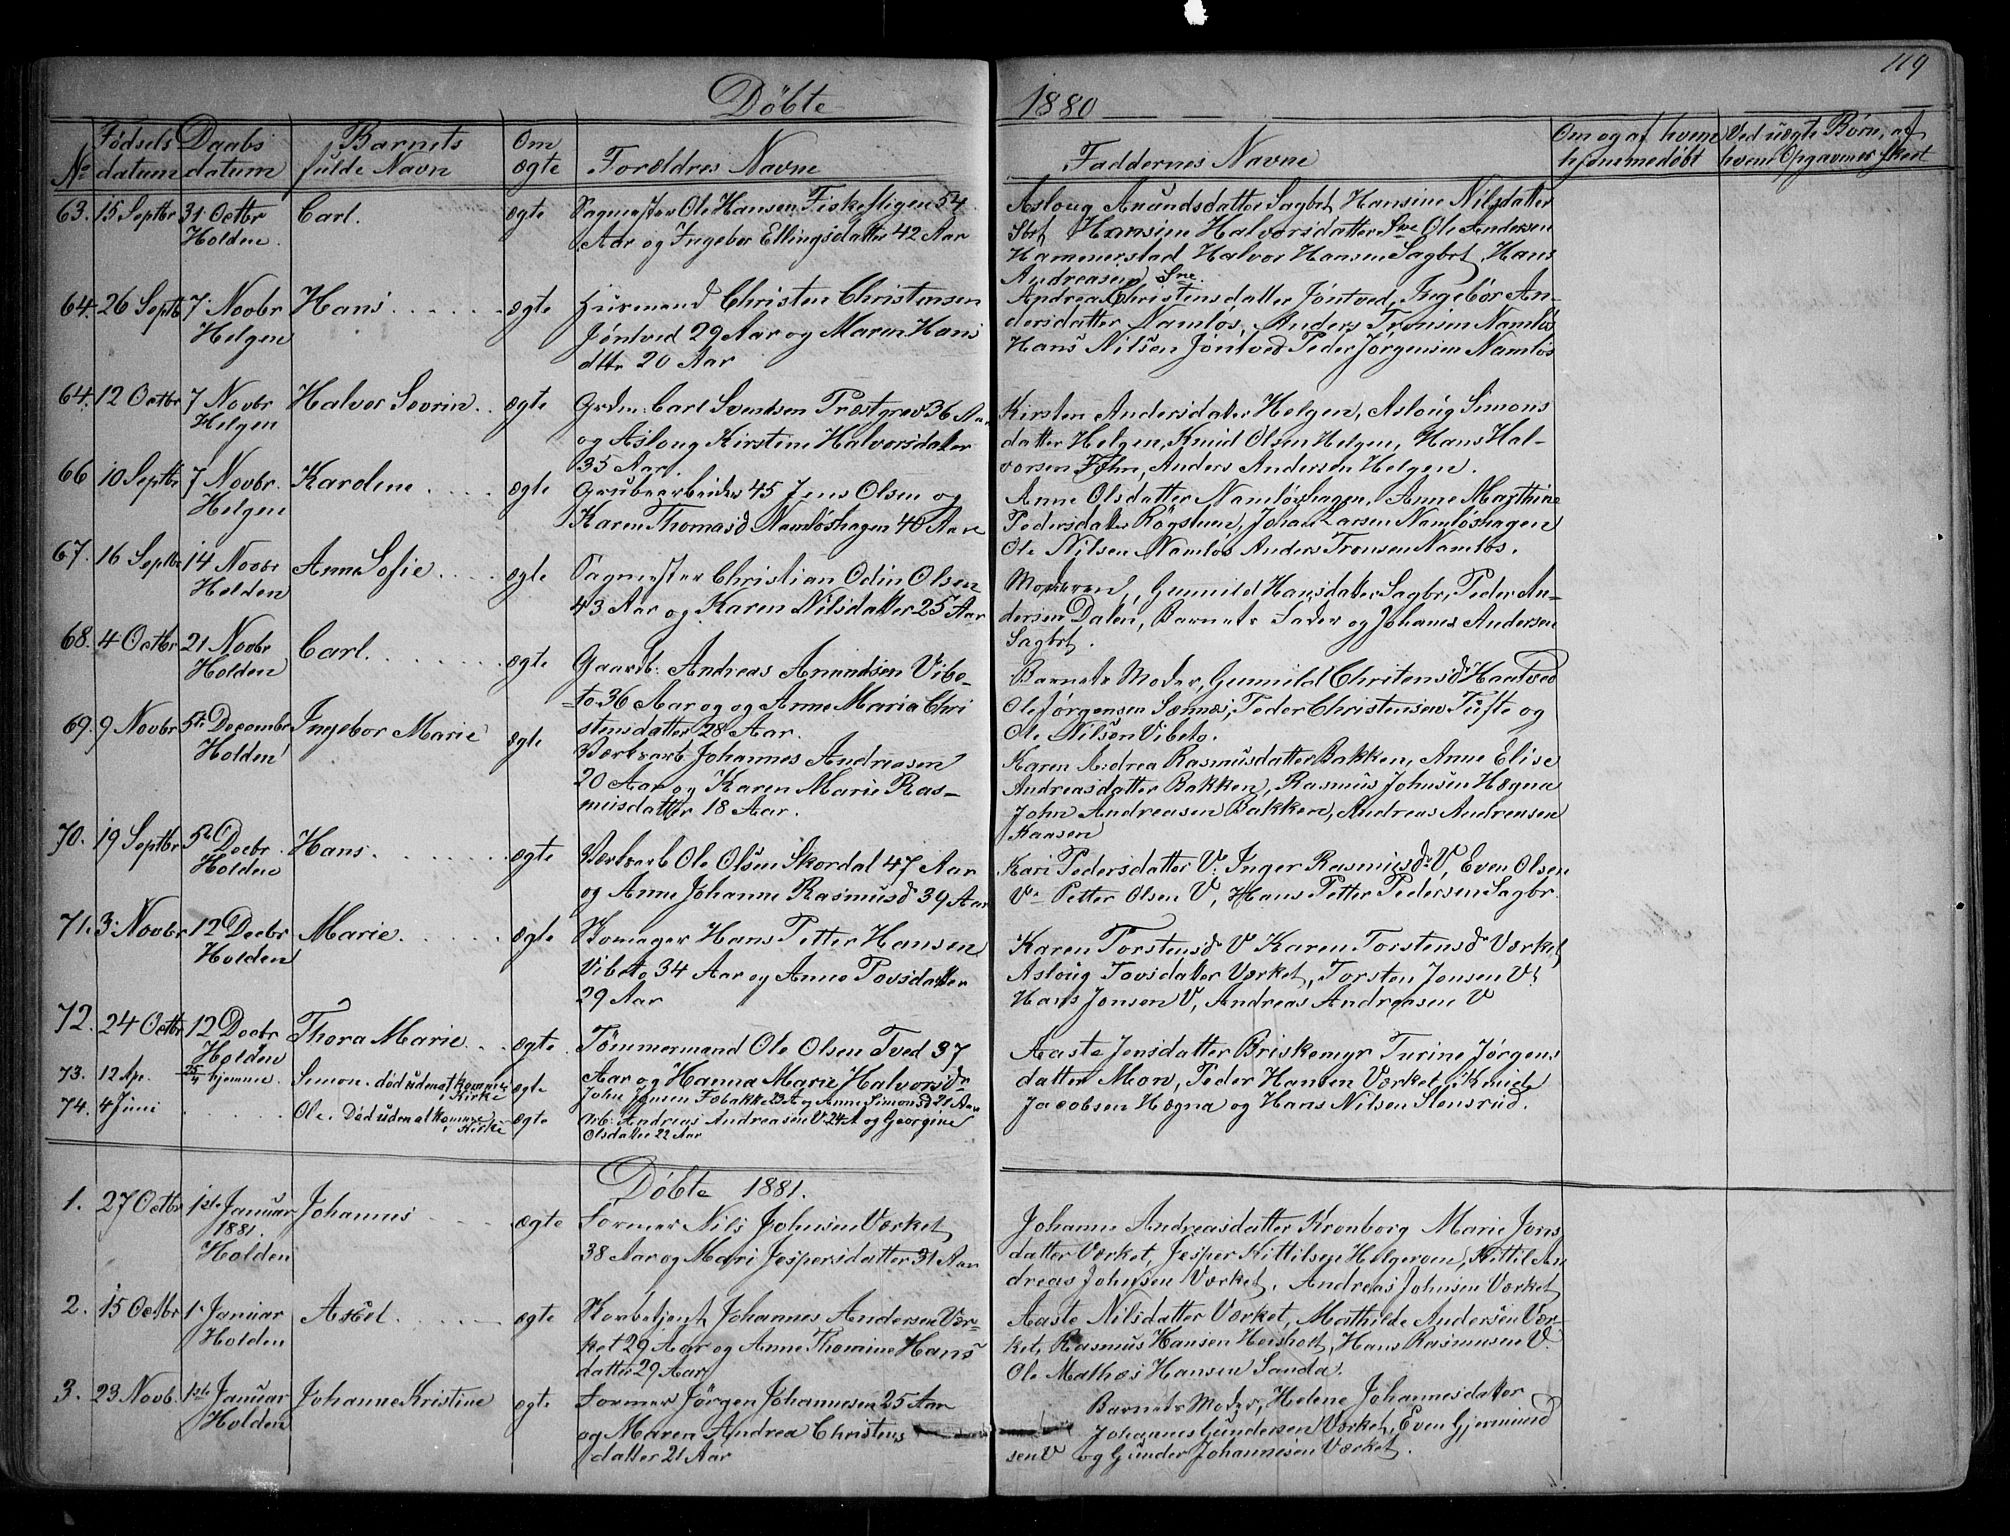 119
Döbte 1880
No Fødsels datum Daabs datum Barnets fulde Navn Om ægte Forældres Navne Faddernes Navne Om og af hvem hjemmedøbt Ved uægte Børn, af hvem Opgavnes skeet
63. 15 Septbr 31 Octbr Holden. Carl. ægte
Sagmester Ole Hansen Fiskestigen 54
Aar og Ingebor Ellingsdatter 42 Aar
Asloug Anundsdatter Sagbrt, Hansine Nilsdatter
Sbrt, Hansine Halvorsdatter Sne Ole Andersen
Hammerstad Halvor Hansen Sagbrt, Hans
Andreasen Sne
64. 26 Septb 7 Novbr Helgen Hans ægte
Husmand Christen Christensen
Jøntved 29 Aar og Maren Hans
dttr 20 Aar
Andrea Christensdatter Jøntved, Ingebør An-
dersdatter Namløs, Anders Tronsen Namløs
Hans Nilsen Jøntved Peder Jørgensen Namløs
64. 12 Octbr 7 Novbr Helgen Halvor Sevrin ægte
Grdm: Carl Svendsen Præstgrev 36 Aar
og Asloug Kirstine Halvorsdater
35 Aar
Kirsten Andersdater Helgen, Asloug Simons
datter Helgen, Knud Olsen Helgen, Hans Hal-
vorsen Fehn, Anders Andersen Helgen.
66 10 Septbr 7 Novbr. Helgen Karoline ægte
Grubearbeider 45 Jens Olsen og
Karen Thomasd Namløshagen 40 Aar
Anne Olsdatter Namløshagen, Anne Marthine
Pedersdatter Røgsluen, Johan Larsen Namløshagen
Ole Nilsen Namløs Anders Tronsen Namløs.
67. 16 Septbr 14 Novbr Holden Anna Sofie ægte
Sagmester Christian Odin Olsen
43 Aar og Karen Nilsdatter 25 Aar
Moderen, Gunnild Hansdatter Sagbr, Peder An-
dersen Dalen, Barnets Fader og Johans Andersen
Sagbrt.
68. 4 Octbr 21 Novbr Holden Carl. ægte
Gaardb: Andreas Anundsen Vibe-
to 36 Aar og og Anne Maria Chri
stensdatter 28 Aar.
Barnets Moder, Gunnild Christensdr Haatved
Ole Jørgensen Sannes, Peder Christensen Tufte og
Ole Nilsen Vibeto.
69. 9 Novbr 5te Decembr Holden Ingebor Marie ægte
Værksarb Johannes Andreasen
20 Aar og Karen Marie Ras-
musdatter 18 Aar.
Karen Andrea Rasmusdatter Bakken, Anne Elise
Andreasdatter Bakken, Rasmus Johnsen Hægna
John Andreasen Bakken, Andreas Andreasen
Kaasen
70. 19 Septbr 5te Decbr. Holden Hans. ægte
Værksarb Ole Olsen Skordal 47 Aar
og Anne Johanne Rasmusd 39 Aar
Kari Pedersdatter V. Inger Rasmusdr V, Even Olsen
V. Petter Olsen V, Hans Petter Pedersen Sagbr.
71. 3 Novbr 12 Decbr Holden Marie. ægte
Komager Hans Petter Hansen
Vibeto 34 Aar og Anne Tovsdatter
29 Aar
Karen Torstensdr V Karen Torstensdr Værket
Asloug Tovsdatter Værket, Torsten Jensen V.
Hans Jonsen V, Andreas Andreasen V
72. 24 Octbr 12 Decbr Holden Thora Marie ægte
Tömmermand Ole Olsen Tved 37
Aar og Hanna Marie Halvorsdr
Aaste Jensdatter Briskemyr Turine Jørgens
datter Moen, Peder Hansen Værket, Knud
Jacobsen Hægna og Hans Nilsen Slensrud.
73. 12 Apr. hjemme. Simon. död uden at komme i Kirke ægte
John Jensen Fæbakke 23 A og Anne Simonsd 21 Aar
74. 4 Juni Ole. Död uden at komme i Kirke ægte
Arb: Andreas Andreasen V. 24 A og Georgine
Olsdatter 22 Aar
Döbte 1881.
1. 27 Octbr 1ste Januar 1881. Holden Johannes ægte
Former Nils Johnsen Værket
38 Aar og Mari Jespersdatter 31 Aar
Johanne Andreasdatter Kronborg Marie Jons
datter Værket, Jesper Kittilsen Helgeroen, Kittil An
dreas Johnsen Værket, Andreas Johnsen Værket
2. 15 Octbr 1. Januar Holden Axel ægte
Kovbetjent Johannes Andersen Vær-
ket 29 Aar og Anne Thomine Hans
datter 29 Aar
Aaste Nilsdatter Værket, Mathilde Andersen Vær-
ket, Rasmus Hansen Hersholt, Hans Rasmusen V.
Ole Mathæs Hansen Sanda.
3. 23 Novb. 1ste Januar Holden Johanne Kristine ægte
Former Jörgen Johannesen 25 Aar
og Maren Andrea Christens
datter 21 Aar
Barnets Moder, Helene Johannesdatter
Johannes Gundersen Værket, Even Gjermund
sen V og Gunder Johannesen Værket.